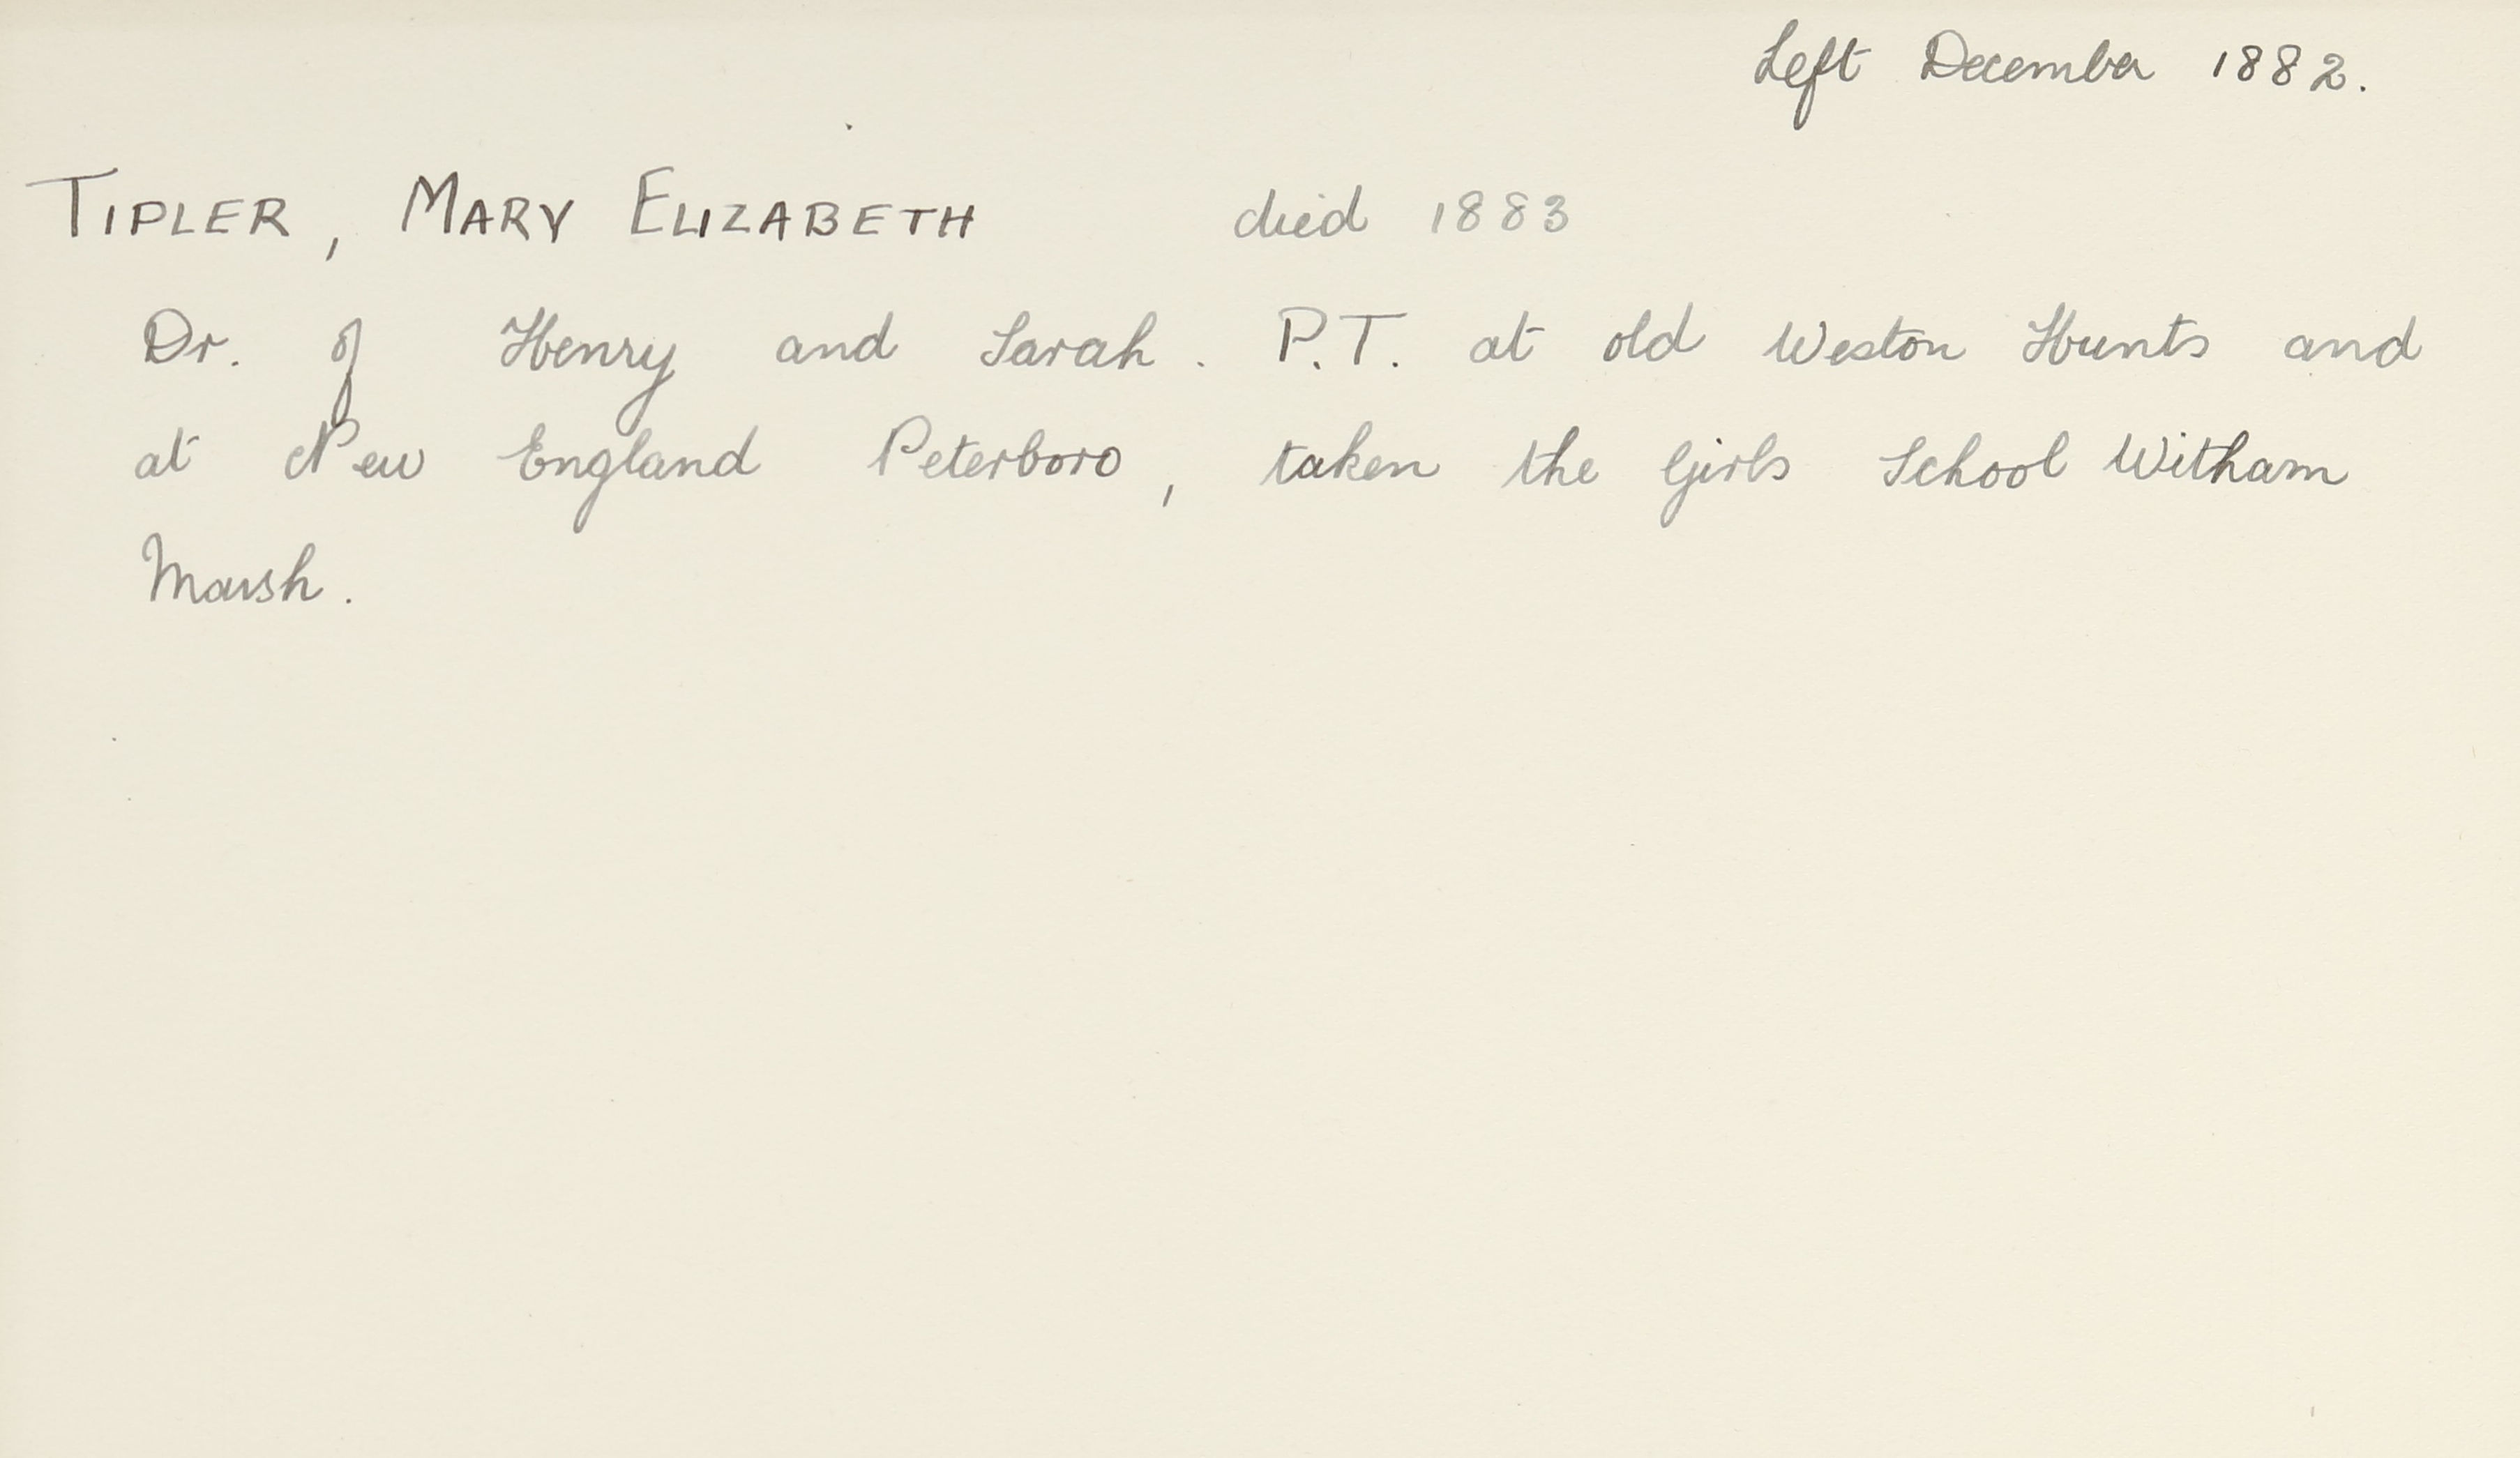 Left December 1882.
TIPLER, MARY ELIZABETH died 1883
Dr. of Henry and Sarah. P.T. at old Weston Hunts and
at New England Peterboro, taken the Girls School Witham
Marsh.